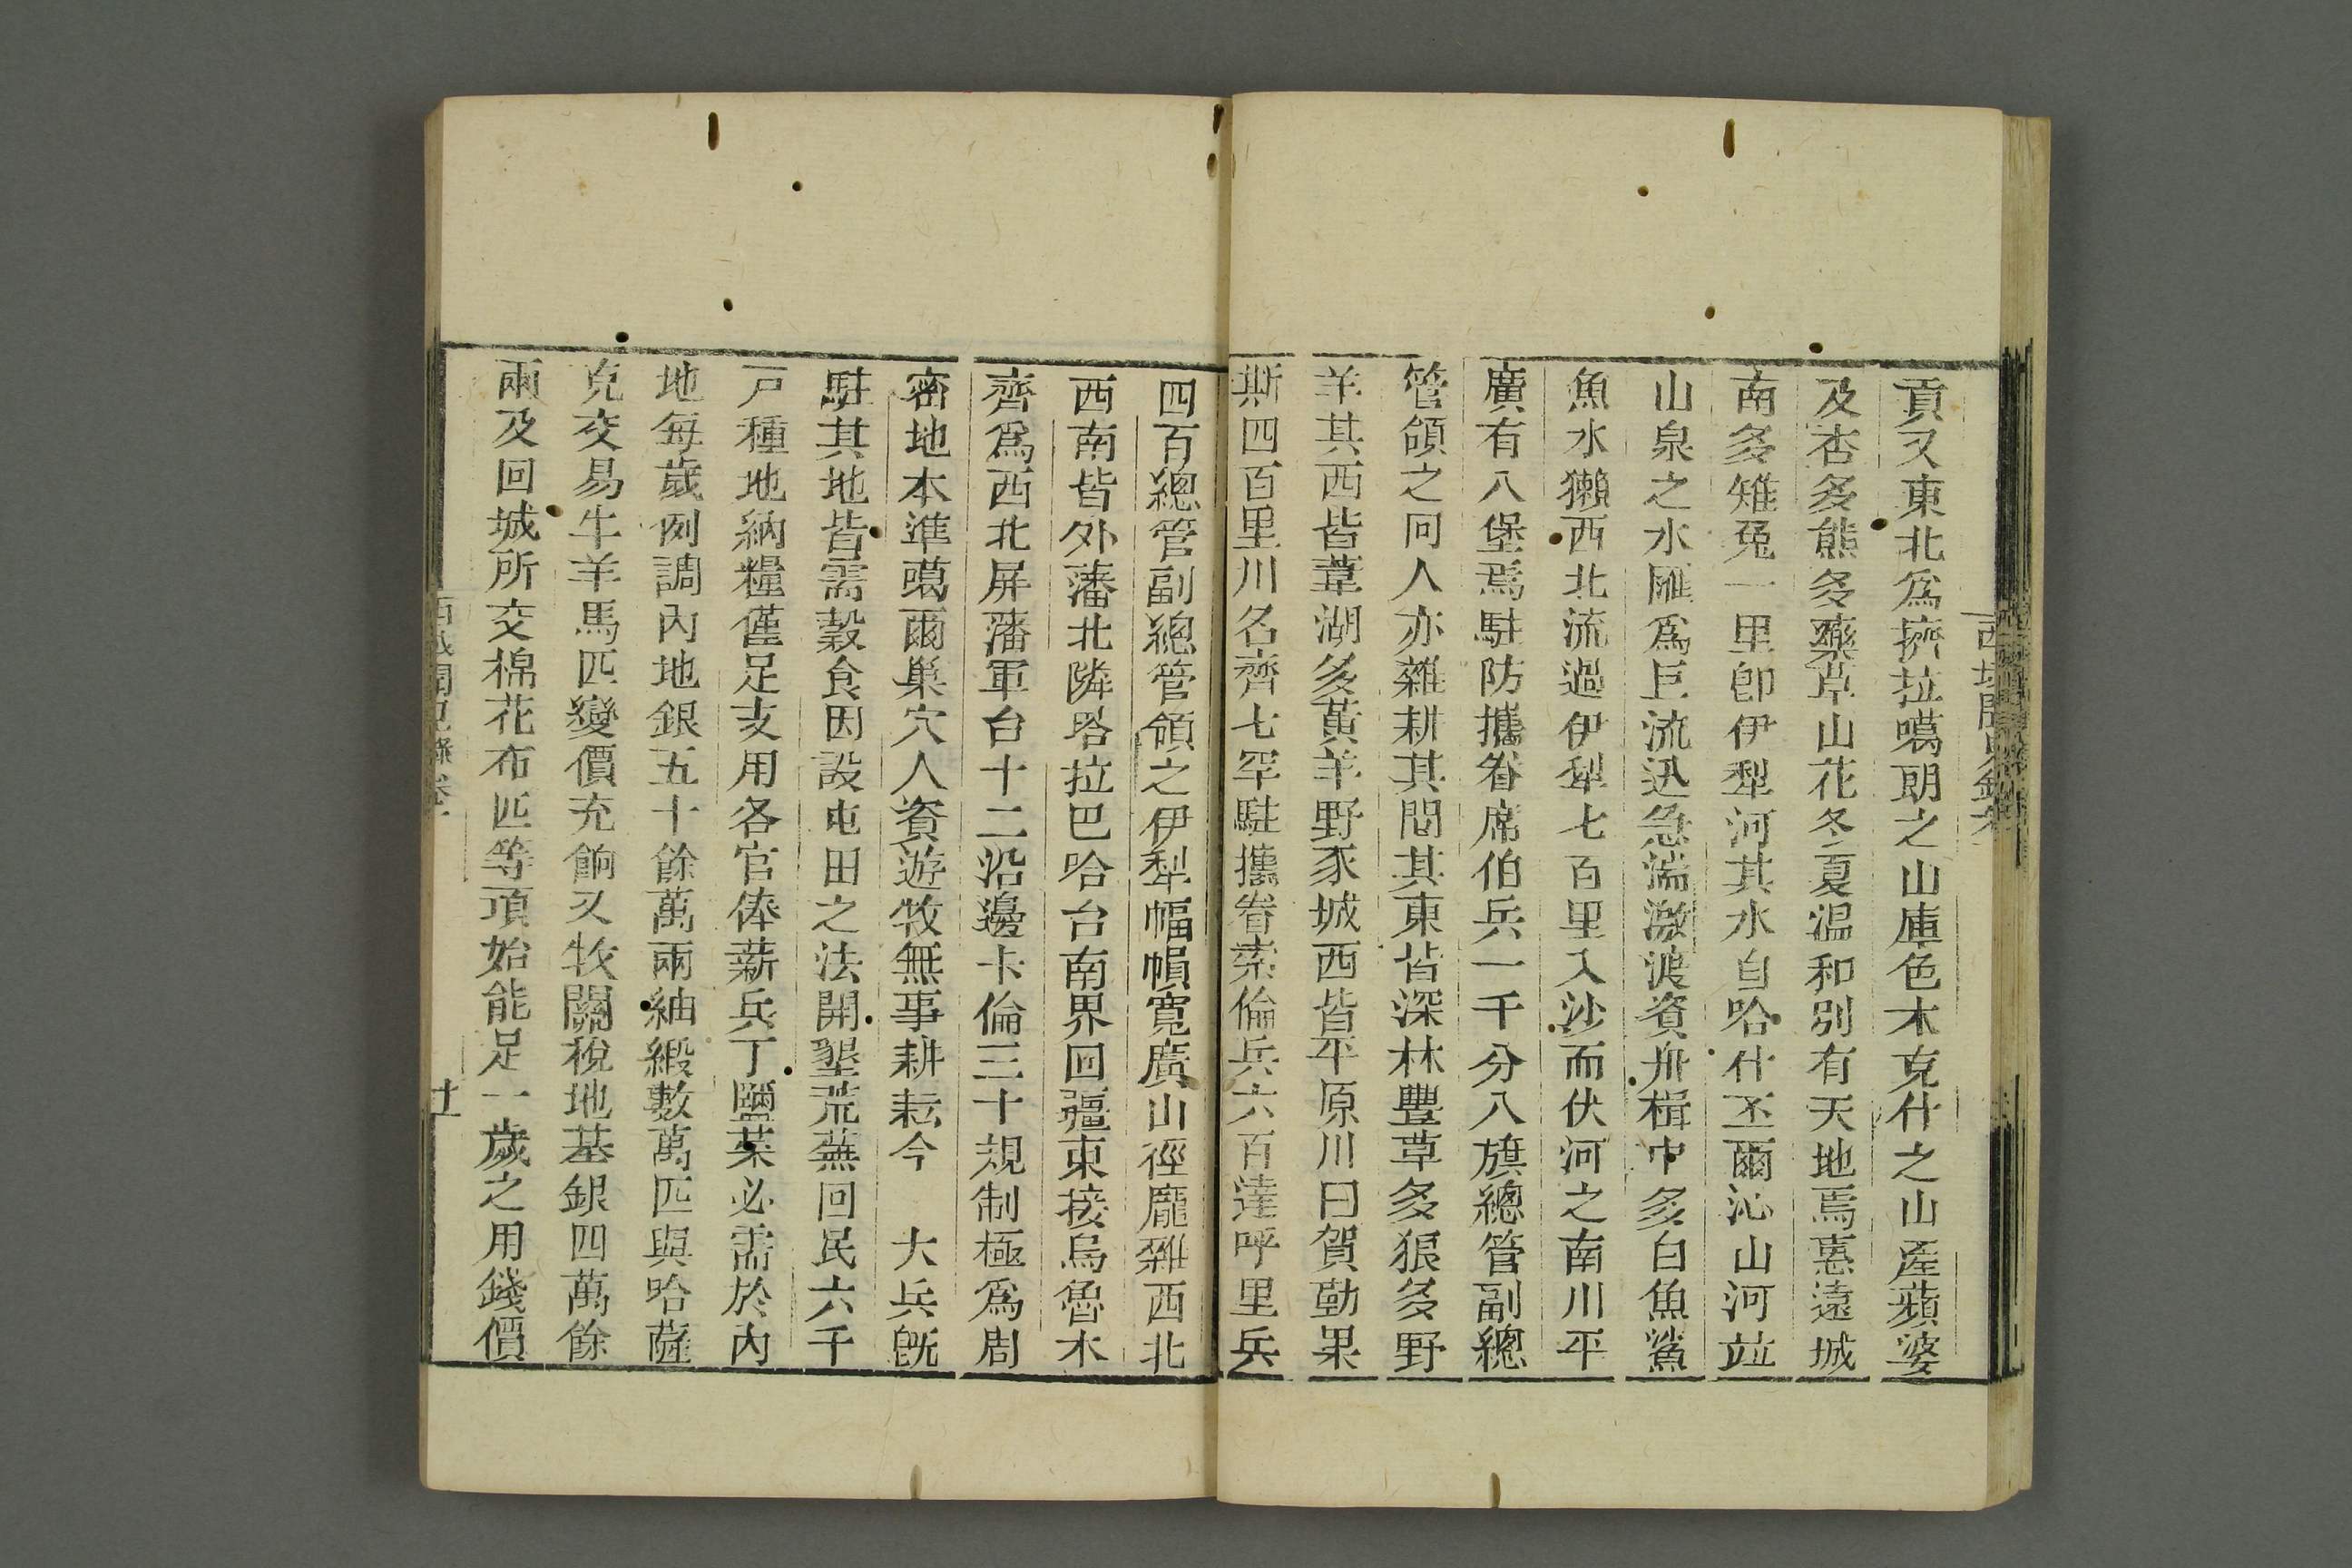 貢又東北爲擠拉噶朗之山庫色木克什之山產蘋婆
及杏多熊多藥草山花冬夏温和别有天地焉惠遠城
南多雉兎一里卽伊犁河其水自哈什丕爾沁山河竝
山泉之水匯爲巨流迅急湍激渡資舟楫中多白魚鯊
魚水獺西北流過伊犁七百里入沙而伏河之南川平
廣有八堡焉駐防攜眷席伯兵一千分八旗總管副總
管領之回人亦雜耕其間其東皆深林豐草多狼多野
羊其西皆葦湖多黃羊野豕城西皆平原川曰賀勒果
斯四百里川名齊七罕駐攜眷索倫兵六百達呼里兵
四百總管副總管領之伊犁幅幀寛廣山徑龐雜西北
西南皆外藩北隣塔拉巴哈台南界回疆東接烏魯木
齊爲西北屏藩軍台十二沿邊卡倫三十規制極爲周
密地本準噶爾巢穴人資遊牧無事耕耘今 大兵旣
駐其地皆需穀食因設屯田之法開墾荒蕪回民六千
戸種地納糧僅足支用各官俸薪兵丁鹽菜必需於內
地每歲例調內地銀五十餘萬兩紬緞數萬匹與哈薩
克交易牛羊馬匹變價充餉又牧關稅地基銀四萬餘
兩及回城所交棉花布匹等項始能足一歲之用錢價
西域聞見錄卷一
十一